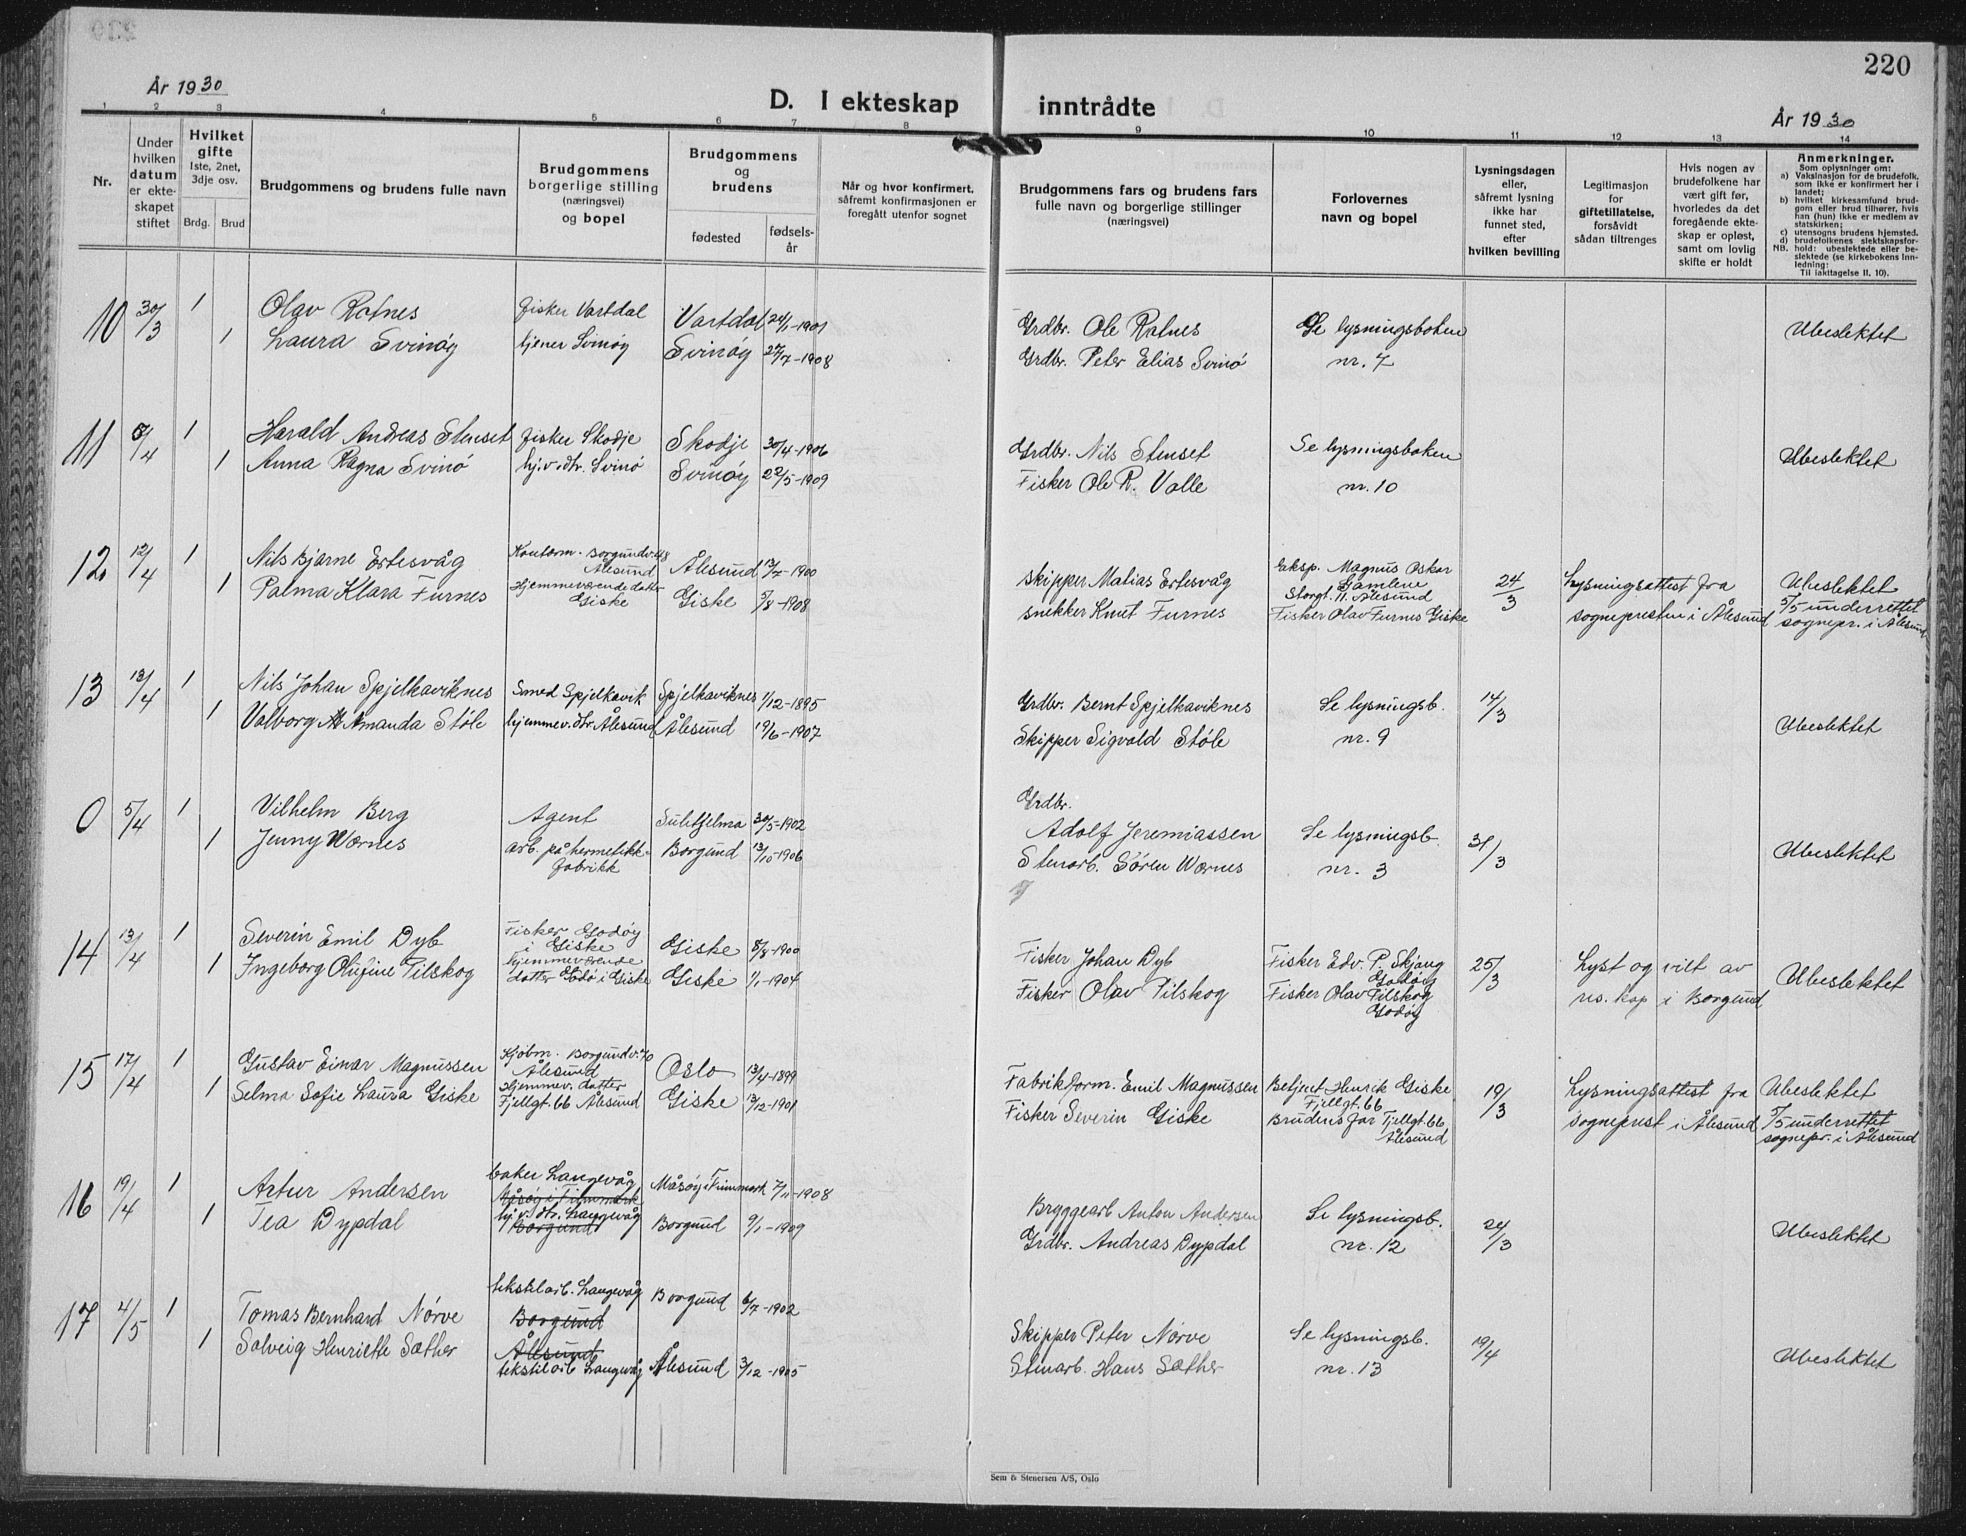 220
År 1930
D. I ekteskap inntrådte
År 1930
1 2 3 4 5 6 7 8 9 10 11 12 13 14
Nr.
Under hvilken datum er ekteskapet stiftet
Hvilket gifte
1ste, 2net, 3dje osv.
Brdg. Brud
Brudgommens og brudens fulle navn
Brudgommens borgerlige stilling (næringsvei) og bopel
Brudgommens og brudens
fødested
fødselsår
Når og hvor konfirmert, såfremt konfirmasjonen er foregått utenfor sognet
Brudgommens fars og brudens fars fulle navn og borgerlige stillinger (næringsvei)
Forlovernes navn og bopel
Lysningsdagen eller, såfremt lysning ikke har funnet sted, efter hvilken bevilling
Legitimasjon for giftetillatelse, forsåvidt sådan tiltrenges
Hvis nogen av brudefolkene har vært gift før, hvorledes da det foregående ekteskap er opløst, samt om lovlig skifte er holdt
Anmerkninger.
Som oplysninger om:
a) Vaksinasjon for de brudefolk, som ikke er konfirmert her i landet;
b) hvilket kirkesamfund brudgom eller brud tilhører, hvis han (hun) ikke er medlem av statskirken;
c) utensogns brudens hjemsted.
d) brudefolkenes slektskapsforhold: ubeslektede eller beslektede (se kirkebokens Innledning;
NB.
Til iakttagelse II. 10).
10 30/3 1 Olav Rotnes fisker Vartdal Vartdal 24/1-1901 Grdbr. Ole Rotnes Se lysningsboken Ubeslektet
1 Laura Svinøy tjener Svinøy Svinøy 27/7-1908 Grdbr. Peter Elias Svinø nr. 7
11 6/4 1 Harald Andreas Stenset fisker Skodje Skodje 30/4-1906 Grdbr. Nils Stenset Se lysningsboken Ubeslektet
1 Anna Ragna Svinø hj.v. dtr. Svinø Svinøy 22/5-1909 Fisker Ole R. Valle nr. 10
12 12/4 1 Nils Bjarne Ertesvåg Kontorm. Borgundv. 48 Ålesund Ålesund 13/7-1900 skipper Matias Ertesvåg Eksp. Magnus Oskar Gamlem Storgt. 11. Ålesund 24/3 Lysningsattest fra Ubeslektet
1 Palma Klara Furnes Hjemmeværende datter Giske Giske 5/8-1908 snekker Knut Furnes Fisker Olav Furnes Giske sognepresten i Ålesund 5/5 underrettet sognepr. i Ålesund
13 13/4 1 Nils Johan Spjelkaviknes Smed Spjelkavik Spjelkaviknes 1/12-1895 Grdbr. Bernt Spjelkaviknes Se lysningsb. 14/3 Ubeslektet
1 Valborg Amanda Støle hjemmev. dtr. Ålesund Ålesund 19/6-1907 Skipper Sigvald Støle nr. 9
0 5/4 1 Vilhelm Berg Agent Sulitjelma 30/5-1902 Grdbr. Adolf Jeremiassen Se lysningsb. 31/3 Ubeslektet
1 Jenny Wærnes arb. på hermetikkfabrikk Borgund 13/10-1906 Stenarb. Søren Wærnes nr. 3
14 13/4 1 Severin Emil Dyb Fisker Godøy i Giske Giske 8/8-1900 Fisker Johan Dyb Fisker Edv. P. Skjong Godøy 25/3 Lyst og vilt av Ubeslektet
1 Ingeborg Olufine Pilskog Hjemmeværende datter Godø i Giske Giske 1/1-1904 Fisker Olav Pilskog Fisker Olav Pilskog Godøy res. kap i Borgund
15 17/4 1 Gustav Eimar Magnussen Kjøbm. Borgundv. 70 Ålesund Oslo 13/4-1899 Fabrikform. Emil Magnussen Betjent Henrik Giske Fjellgt. 66 19/3 Lysningsattest fra Ubeslektet
1 Selma Sofie Laura Giske Hjemmev. datter Fjellgt. 66 Ålesund Giske 13/12-1901 Fisker Severin Giske Brudens far Fjellgt. 66 Ålesund sogneprest i Ålesund 5/5 underrettet sognepr. i Ålesund
16 19/4 1 Artur Andersen baker Langevåg Måsøy i Finnmark Måsøy i Finnmark 7/11-1908 Bryggearb Anton Andersen Se lysningsb. 24/3 Ubeslektet
1 Tea Dypdal hj.v. dtr. Langevåg Borgund Borgund 9/1-1909 Grdbr. Andreas Dypdal nr. 12
17 4/5 1 Tomas Bernhard Nørve tekstilarb. Langevåg Borgund Borgund 6/7-1902 Skipper Peter Nørve Se lysningsb. 19/4 Ubeslektet
1 Solveig Henriette Sæther Ålesund tekstilarb Langevåg Ålesund 3/12-1905 Stenarb. Hans Sæther nr. 13
Sem & Stenersen A/S, Oslo